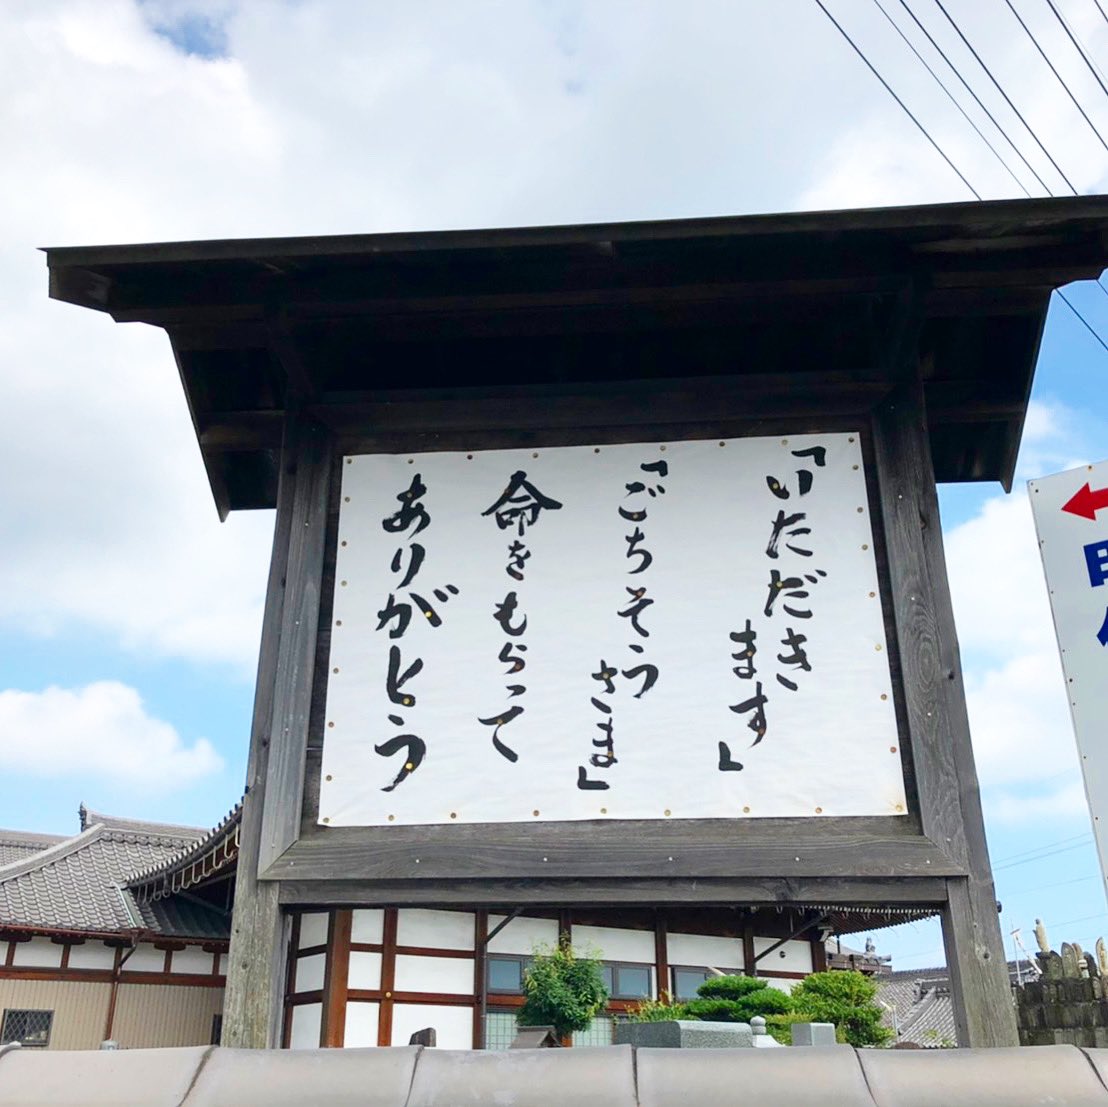 「いただきます」
「ごちそうさま」
命をもらって
ありがとう